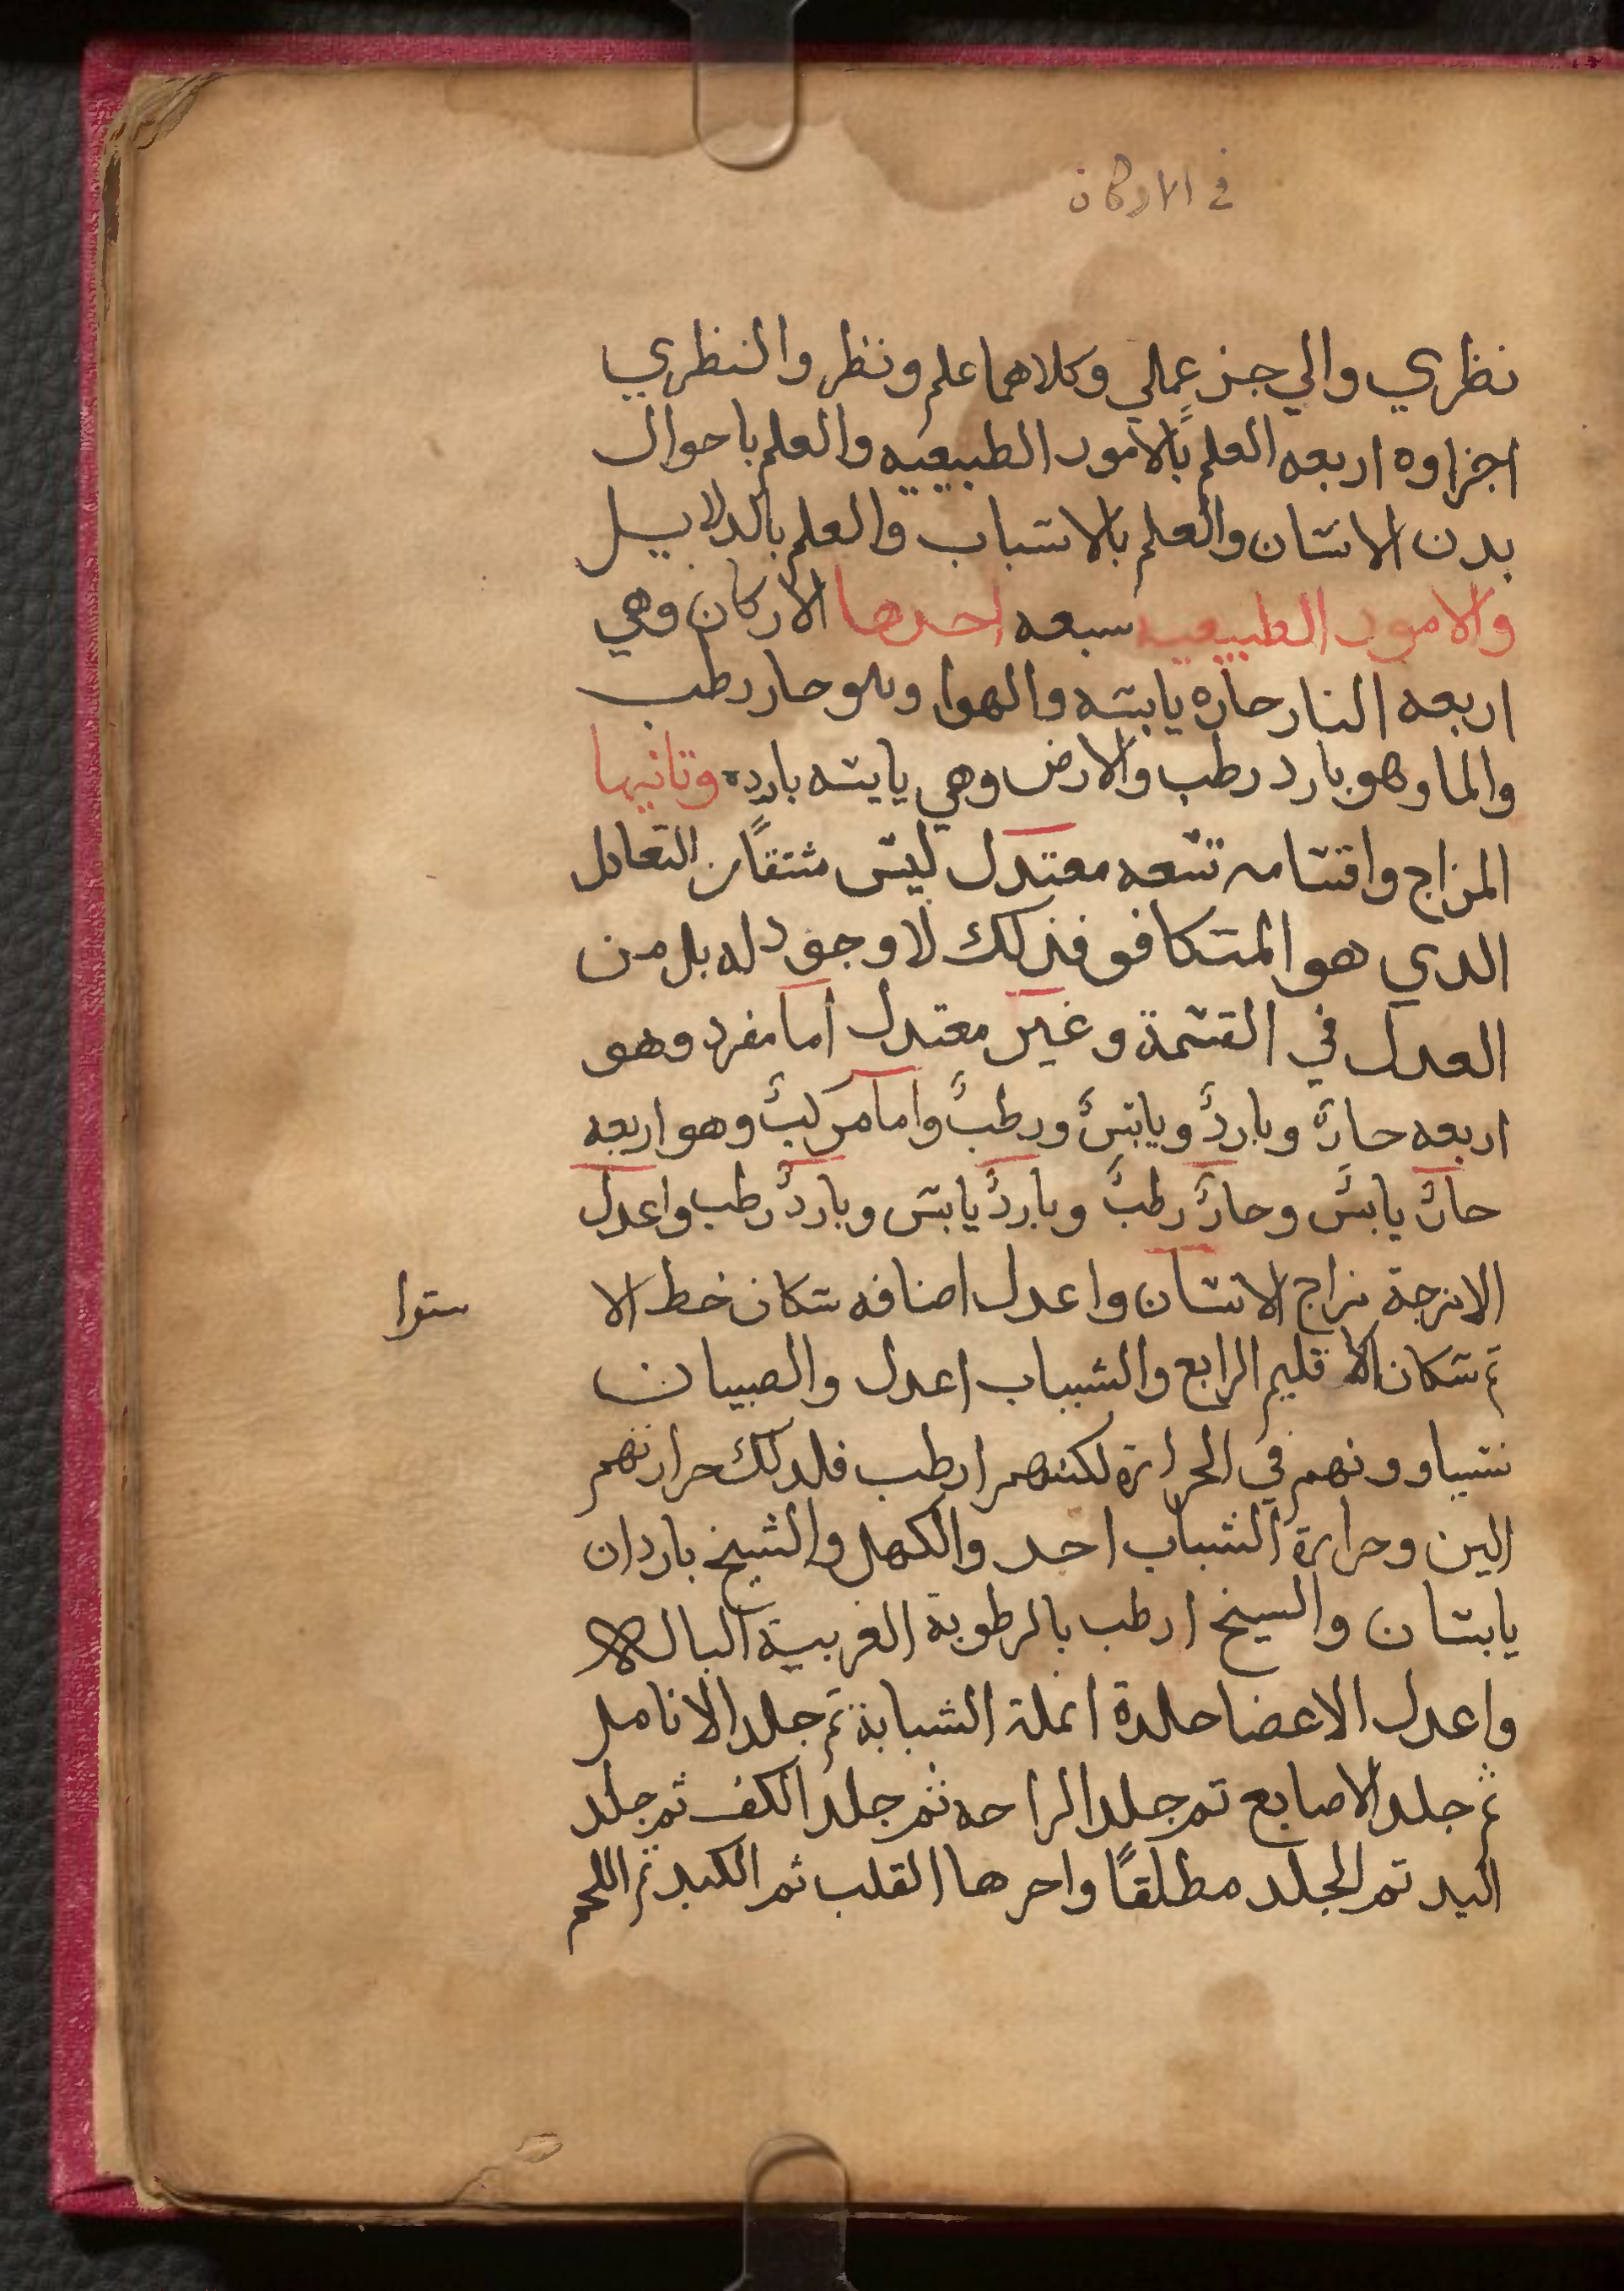 في الاركان
نظري والي جز عملي وكلاهما علم ونظر والنظري
اجزاوه اربعه العلم بالامور الطبيعيه والعلم باحوال
بدن الانسان والعلم بالاسباب والعلم بالدلايل
والامور الطبيعيه سبعه احدها الاركان وهي
اربعه النار حاره يابسه والهوا وهو حار رطب
والما وهو بارد رطب والارض وهي يابسه بارده وتانيها
المزاج واقسامه تسعه معتدل ليس مشتقا من التعادل
الدي هو المتكافو فذلك لا وجود له بل من
العدل في القسمة وغير معتدل اما مفرد وهو
اربعه حارٌ وباردٌ ويابسٌ ورطبٌ واما مركبٌ وهو اربعه
حارٌ يابسٌ وحارٌ رطبٌ وباردٌ يابس وباردٌ رطب واعدل
الامزجة مزاج الانسان واعدل اصنافه سكان خط الا
ستوا
تم سكان الاقليم الرابع والشباب اعدل والصبيان
يتساوونهم في الحرارة لكنهم ارطب فلدلك حرارتهم
الين وحرارة الشباب احد والكهل والشيخ باردان
يابسان والسيخ ارطب بالرطوبة الغريبية البالة
واعدل الاعضا جلدة انملة السبابة تم جلد الانامل
ثم جلد الاصابع تم جلد الراحه ثم جلد الكف ثم جلد
اليد تم الجلد مطلقًا واحرها القلب ثم الكبد ثم اللحم